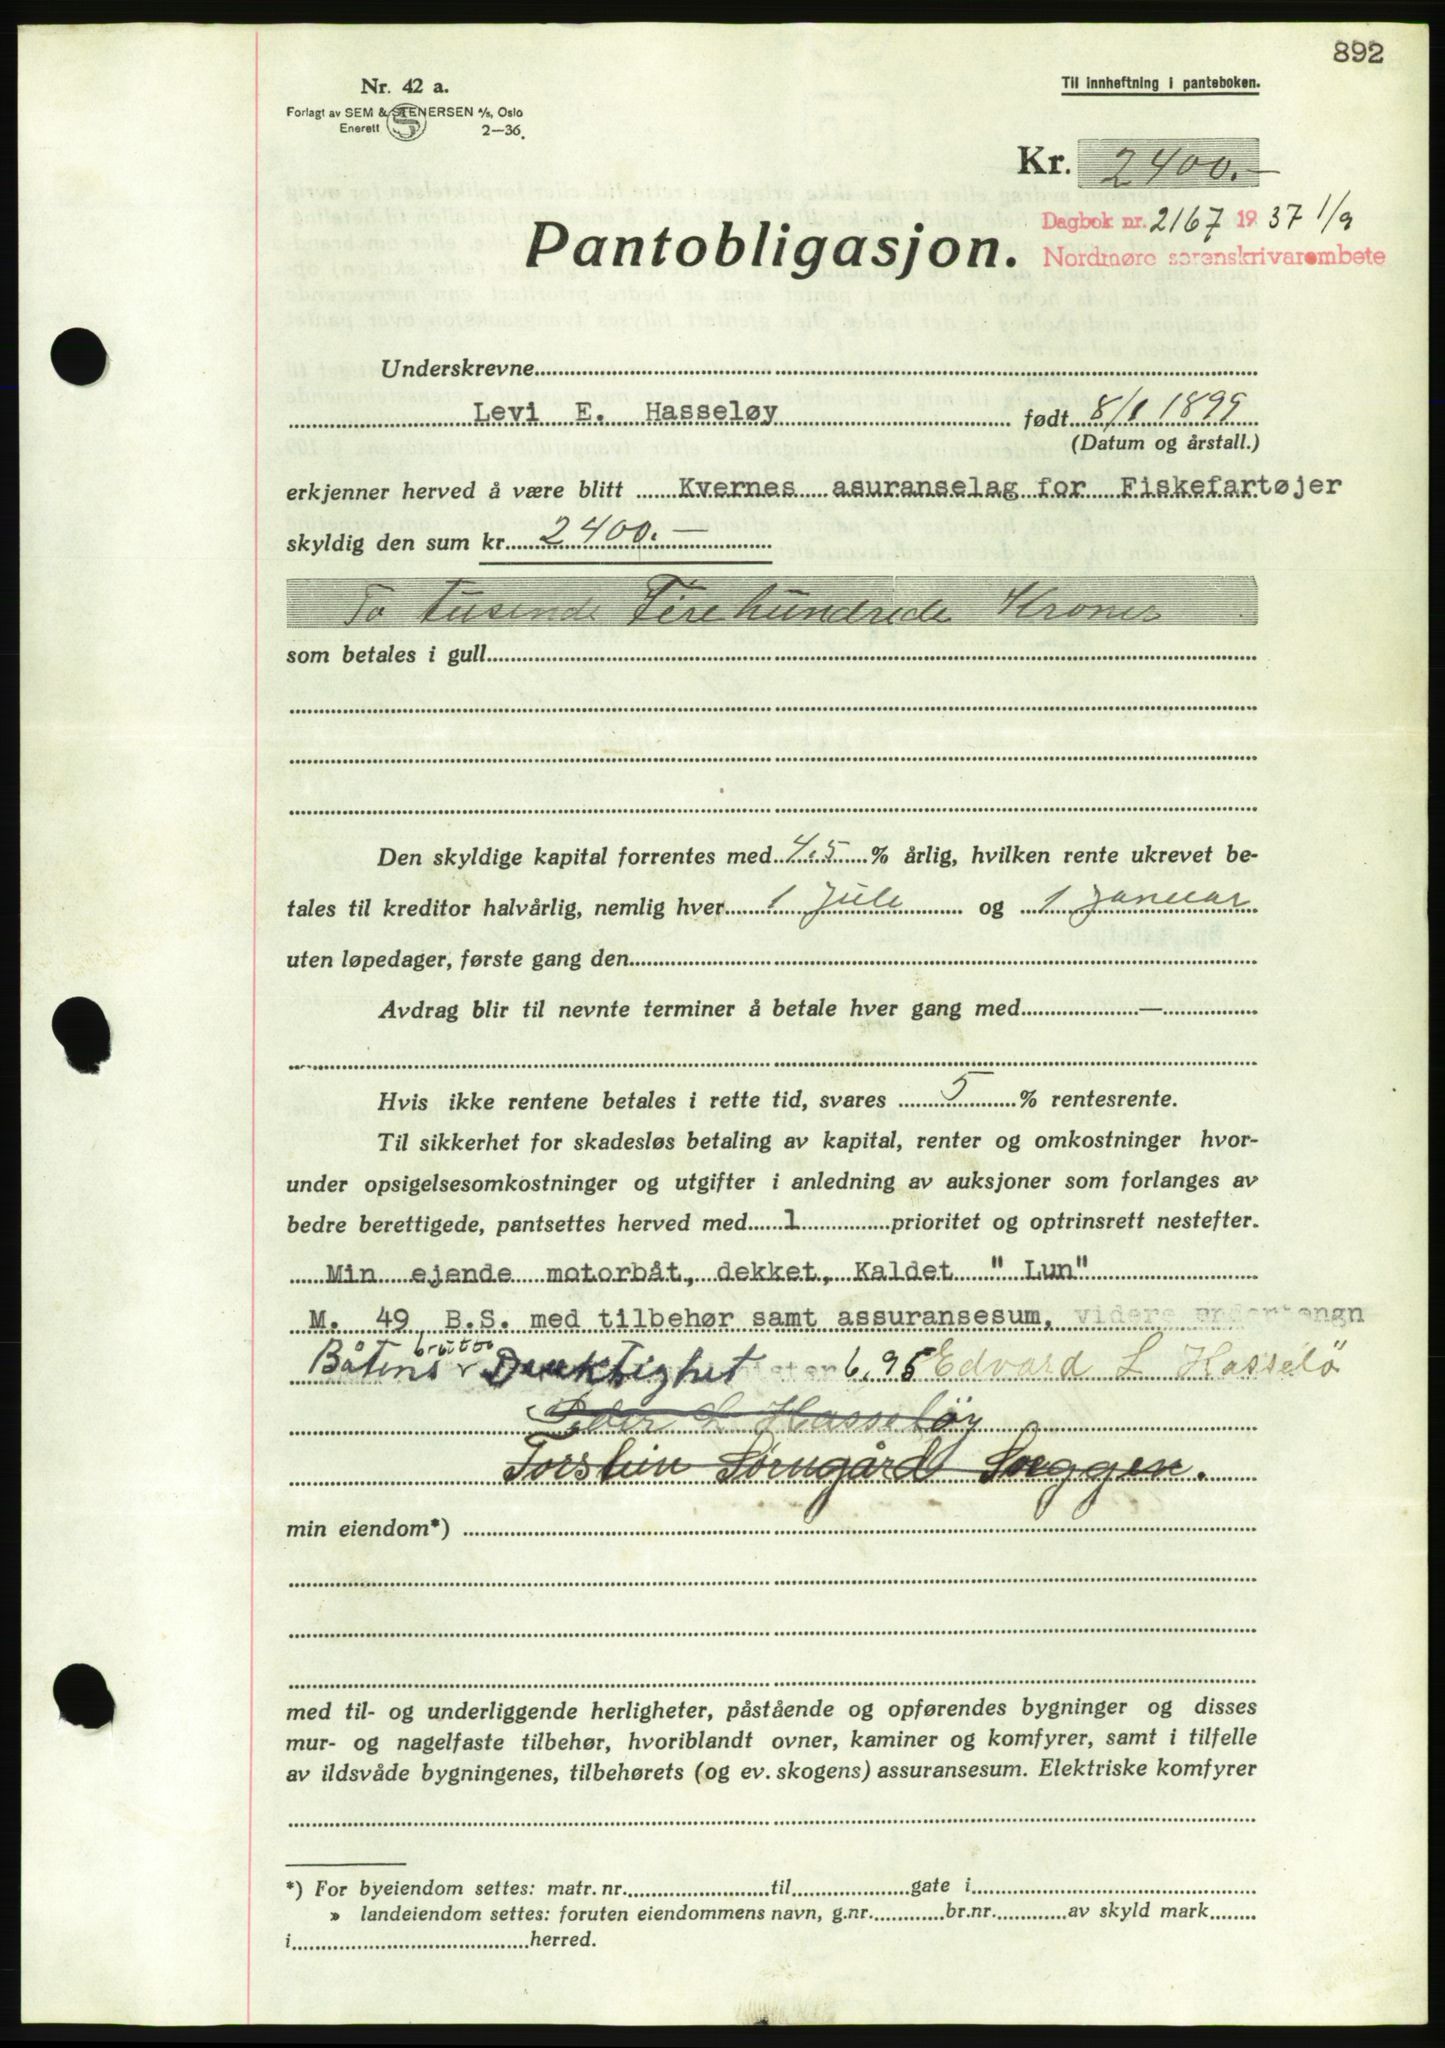 892
Nr. 42 a.
Til innheftning i panteboken.
Forlagt av SEM & STENERSEN A/S, Oslo
Enerett 2—36.
Kr. 2400.—
Dagbok nr. 2167 1937 1/9
Nordmøre sorenskrivarembete
Pantobligasjon.
Underskrevne
Levi E. Hasseløy født 8/1 1899
(Datum og årstall.)
erkjenner herved å være blitt Kvernes asuranselag for Fiskefartøjer
skyldig den sum kr. 2400.—
To tusende Fire hundrede Kroner
som betales i gull
Den skyldige kapital forrentes med 4.5 % årlig, hvilken rente ukrevet be-
tales til kreditor halvårlig, nemlig hver 1 Juli og 1 Januar
uten løpedager, første gang den
Avdrag blir til nevnte terminer å betale hver gang med —
Hvis ikke rentene betales i rette tid, svares 5 % rentesrente.
Til sikkerhet for skadesløs betaling av kapital, renter og omkostninger hvor-
under opsigelsesomkostninger og utgifter i anledning av auksjoner som forlanges av
bedre berettigede, pantsettes herved med 1 prioritet og optrinsrett nestefter.
Min ejende motorbåt, dekket, Kaldet " Lun"
M. 49 B.S. med tilbehør samt assuransesum,
brutto
Båtens Drektighet 6,95 Edvard L Hasselö
Peder L Hasseløy
Torstein Sørngård Sveggen.
min eiendom*)
med til- og underliggende herligheter, påstående og opførendes bygninger og disses
mur- og nagelfaste tilbehør, hvoriblandt ovner, kaminer og komfyrer, samt i tilfelle
av ildsvåde bygningenes, tilbehørets (og ev. skogens) assuransesum. Elektriske komfyrer
*) For byeiendom settes: matr. nr. til gate i
» landeiendom settes: foruten eiendommens navn, g.nr. br.nr. av skyld mark
i herred.